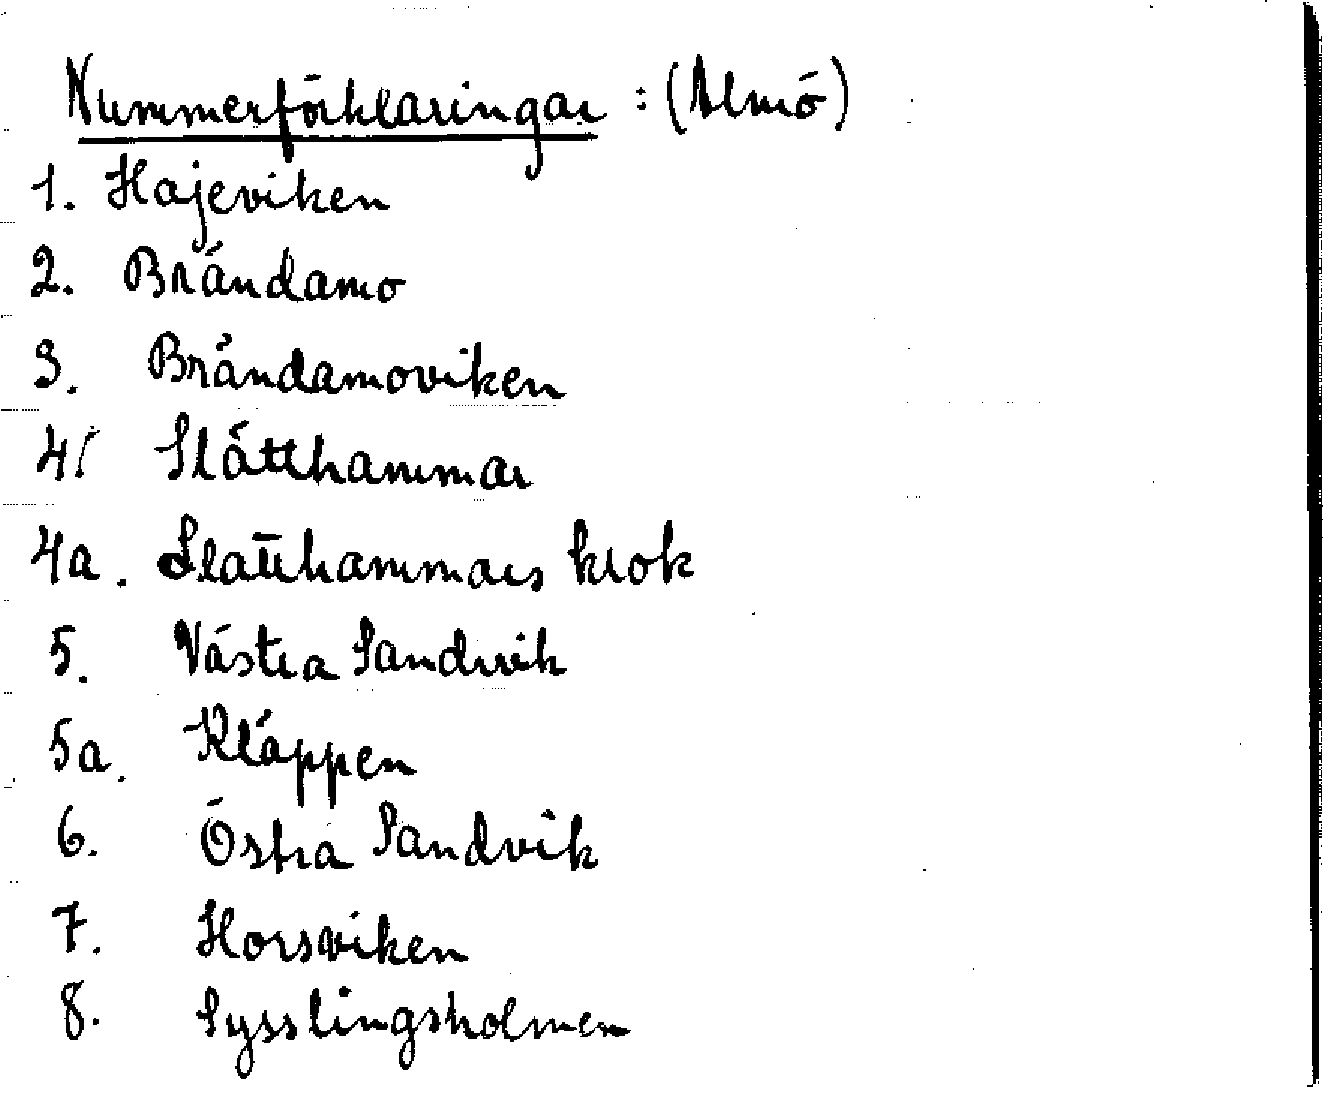 Nummerförklaringar : (Almö)
1. Hajeviken
2. Brändamo
3. Brändamoviken
4. Slätthammar
4a. Slätthammars krok
5. Västra Sandvik
5a. Kläppen
6. Östra Sandvik
7. Horsviken
8. Sysslingsholmen